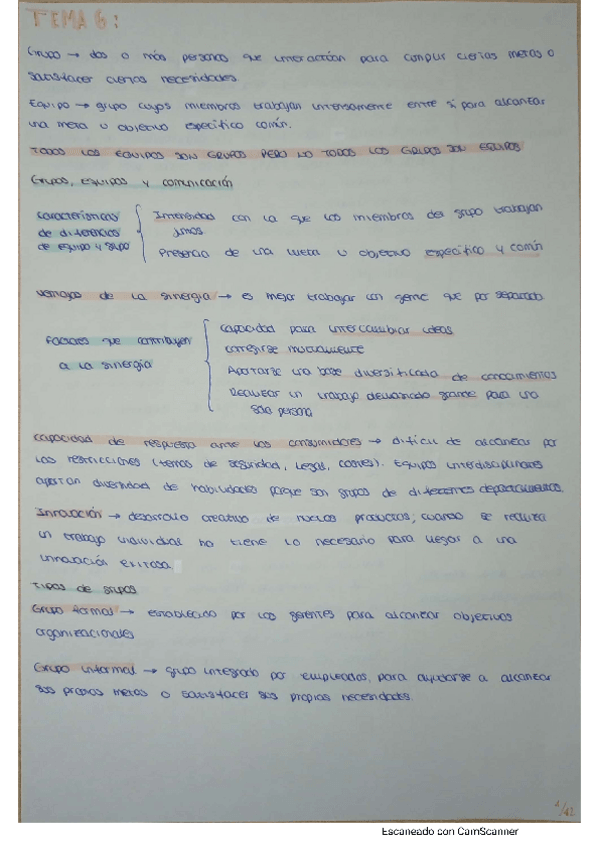 TEMA 6:
Grupo → dos o más personas que interactúan para cumplir ciertas metas o
satisfacer ciertas necesidades
Equipo → grupo cuyos miembros trabajan intensamente entre sí para alcanzar
una meta u objetivo específico común.
TODOS LOS EQUIPOS SON GRUPOS PERO NO TODOS LOS GRUPOS SON EQUIPOS
Grupos, equipos y comunicación
Características
de diferencias
de equipo y grupo
Intensidad con la que los miembros del grupo trabajan
juntos
Presencia de una meta u objetivo específico y común
Ventajas de la sinergia → es mejor trabajar con gente que por separado
Factores que contribuyen
a la sinergia
Capacidad para intercambiar ideas
corregirse mutuamente
Aportarse una base diversificada de conocimientos
Realizar un trabajo demasiado grande para una
sola persona
Capacidad de respuesta ante los consumidores → difícil de alcanzar por
las restricciones (temas de seguridad, legal, costes). Equipos interdisciplinares
aportan diversidad de habilidades porque son grupos de diferentes departamentos.
Innovación → desarrollo creativo de nuevos productos; cuando se realiza
un trabajo individual no tiene lo necesario para llegar a una
innovación exitosa
Tipos de grupos
Grupo formal → establecido por los gerentes para alcanzar objetivos
organizacionales
Grupo informal → grupo integrado por empleados, para ayudarse a alcanzar
sus propias metas o satisfacer sus propias necesidades.
Escaneado con CamScanner